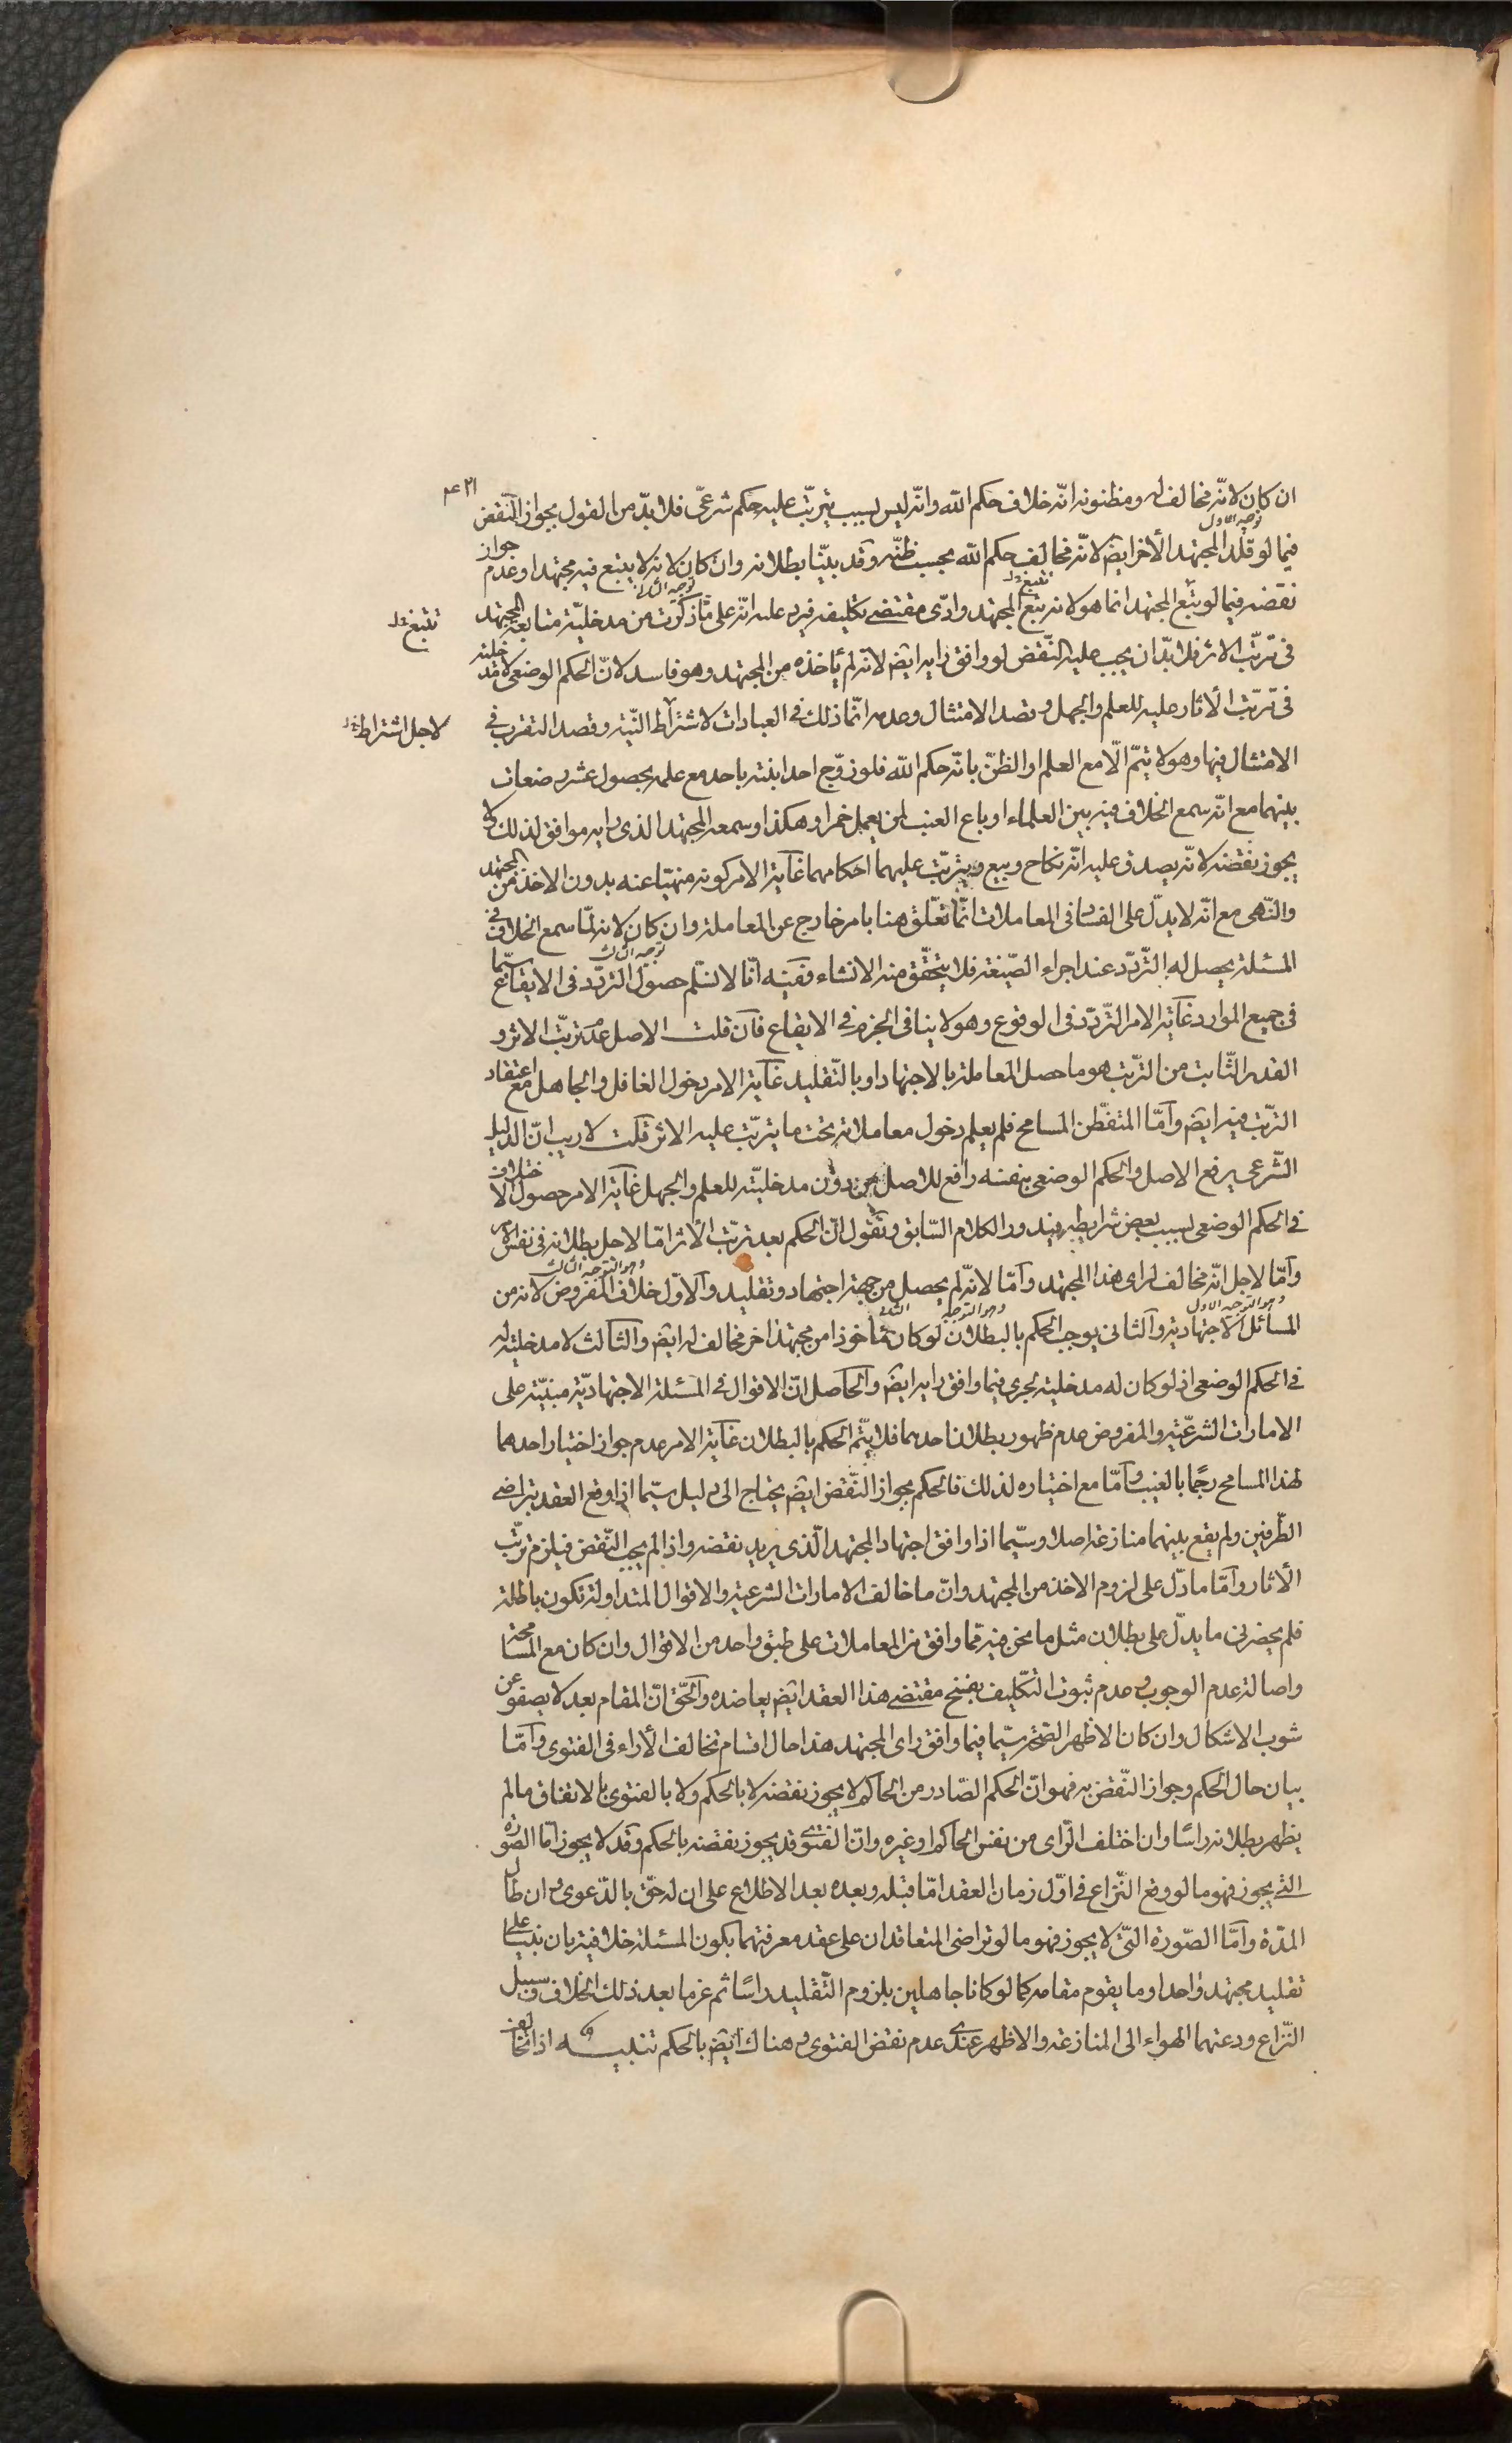 ان كان لانّه مخالف له ومظنونه انّه خلاف حكم الله وانّه ليس بسبب يترتّب عليه حكم شرعىّ فلابدّ من القول بجواز النّقض
توجيه الاول
فيما لو قلّد المجتهد الأخر ايضا لانّه مخالف حكم الله بحسب ظنّه وقد بيّنا بطلانه وان كان لانه لا يتبع فيه مجتهدا وعدم جواز
نقضه فيما لو تبع المجتهد انما هو لانه يتبع المجتهد وادّى مقتضى تكليفه فيرد عليه انّه على ما ذكرت من مدخليّة متابعة المجتهد
فى ترتّب الاثر فلابدّ ان يجب عليه النّقض لو وافق رايه ايضا لانّه لم يأخذه من المجتهد وهو فاسد لانّ الحكم الوضعى لا مدخلية
فى ترتّب الأثار عليه للعلم والجهل وقصد الامتثال وعدمه انّما ذلك فى العبادات لاشتراط النّية وقصد التقرب فى
لاجل اشتراط
الامتثال فيها وهو لا يتمّ الّا مع العلم او الظنّ بانّه حكم الله فلو زوّج احد ابنته باحد مع علمه بحصول عشر رضعات
بينهما مع انّه سمع الخلاف فيه بين العلماء او باع العنب لمن يعمل خمرا وهكذا وسمعه المجتهد الذى رايه موافق لذلك لا
يجوز نقضه لانّه يصدق عليه انّه نكاح وبيع ويترتّب عليهما احكامهما غاية الامر كونه منهيّا عنه بدون الاخذ من المجتهد
والنّهى مع انّه لا يدلّ على الفساد فى المعاملات انّما تعلّق هنا بامر خارج عن المعاملة وان كان لانه لمّا سمع الخلاف فى
المسئلة يحصل له التّردّد عند اجراء الصّيغة فلا يتحقّق منه الانشاء ففيه انّا لا نسلّم حصول التردّد فى الايقاع سيّما
فى جميع الموارد غاية الامر التّردّد فى الوقوع وهو لا ينافى الجزم فى الايقاع فان قلت الاصل عدم ترتّب الاثر و
القدر الثّابت من الترتّب هو ما حصل المعاملة بالاجتهاد او بالتّقليد غاية الامر دخول الغافل والجاهل مع اعتقاد
الترتّب فيه ايضا وامّا المتفطّن المسامح فلم يعلم دخول معاملاته تحت ما يترتّب عليه الاثر قلت لا ريب انّ الدليل
الشّرعى يرفع الاصل والحكم الوضعى بنفسه رافع للاصل من دون مدخليّته للعلم والجهل غاية الامر حصول الاختلاف
فى الحكم الوضعى بسبب بعض شرايطه فيدور الكلام السّابق ونقول انّ الحكم بعد ترتّب الأثر امّا لاجل بطلانه فى نفس الامر
وهو التوجيه الثالث
وامّا لاجل انّه مخالف لراى هذا المجتهد وامّا لانّه لم يحصل من جهة اجتهاد وتقليد والاوّل خلاف المفروض لانه من
وهو التوجيه الاول
المسائل الاجتهادية والثانى يوجب الحكم بالبطلان لو كان مأخوذا من مجتهد اخر مخالف له ايضا والثالث لا مدخلية له
فى الحكم الوضعى اذ لو كان له مدخلية لجرى فيما وافق رايه ايضا والحاصل انّ الاقوال فى المسئلة الاجتهاديّة مبنيّة على
الامارات الشرعيّة والمفروض عدم ظهور بطلان احدهما فلا يتمّ الحكم بالبطلان غاية الامر عدم جواز اختيار احدهما
لهذا المسامح رجمًا بالغيب وامّا مع اختياره لذلك فالحكم بجواز النّقض ايضا يحتاج الى دليل سيّما اذا وقع العقد بتراضى
الطّرفين ولم يقع بينهما منازعة اصلا وسيّما اذا وافق اجتهاد المجتهد الّذى يريد نقضه واذا لم يجب النّقض فيلزم ترتّب
الأثار وامّا ما دلّ على لزوم الاخذ من المجتهد وانّ ما خالف الامارات الشرعية والاقوال المتداولة تكون باطلة
فلم يحضرنى ما يدلّ على بطلان مثل ما نحن فيه ممّا وافق من المعاملات على طبق واحد من الاقوال وان كان مع المسامحة
واصالة عدم الوجوب وعدم ثبوت التكليف بفسخ مقتضى هذا العقد ايضا يعاضده والحقّ انّ المقام بعد لا يصفو عن
شوب الاشكال وان كان الاظهر الصّحة سيّما فيما وافق راى المجتهد هذا حال اقسام تخالف الأراء فى الفتوى وامّا
بيان حال الحكم وجواز النّقض به فهو انّ الحكم الصّادر من الحاكم لا يجوز نقضه لا بالحكم ولا بالفتوى بالاتفاق ما لم
يظهر بطلانه راسًا وان اختلف الرّاى من نفس الحاكم او غيره وانّ الفتوى قد يجوز نقضه بالحكم وقد لا يجوز امّا الصّورة
التى يجوز فهو ما لو وقع النّزاع فى اوّل زمان العقد امّا قبله وبعده بعد الاطلاع على ان له حقّ بالدّعوى وان طال
المدّة وامّا الصّورة التّى لا يجوز فهو ما لو تراضى المتعاقدان على عقد مع معرفتهما بكون المسئلة خلافية بان بنيا على
تقليد مجتهد واحد او ما يقوم مقامه كما لو كانا جاهلين بلزوم التّقليد راسًا ثم عرفا بعد ذلك الخلاف وسبيل
النّزاع ودعتهما الهواء الى المنازعة والاظهر عندى عدم نقض الفتوى هناك ايضا بالحكم تنبيه اذا تخالف